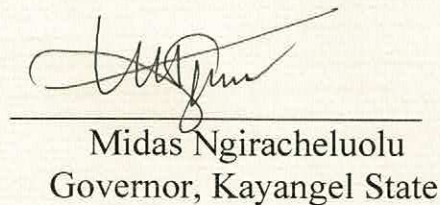 Midas Ngiracheluolu
Governor, Kayangel State